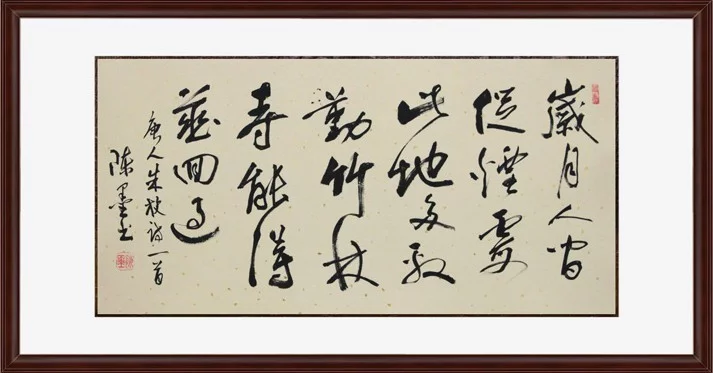 歲月人间
促煙霞
此地多殷
勤竹林
寺能得
幾回過
唐人朱放詩一首
陳墨书